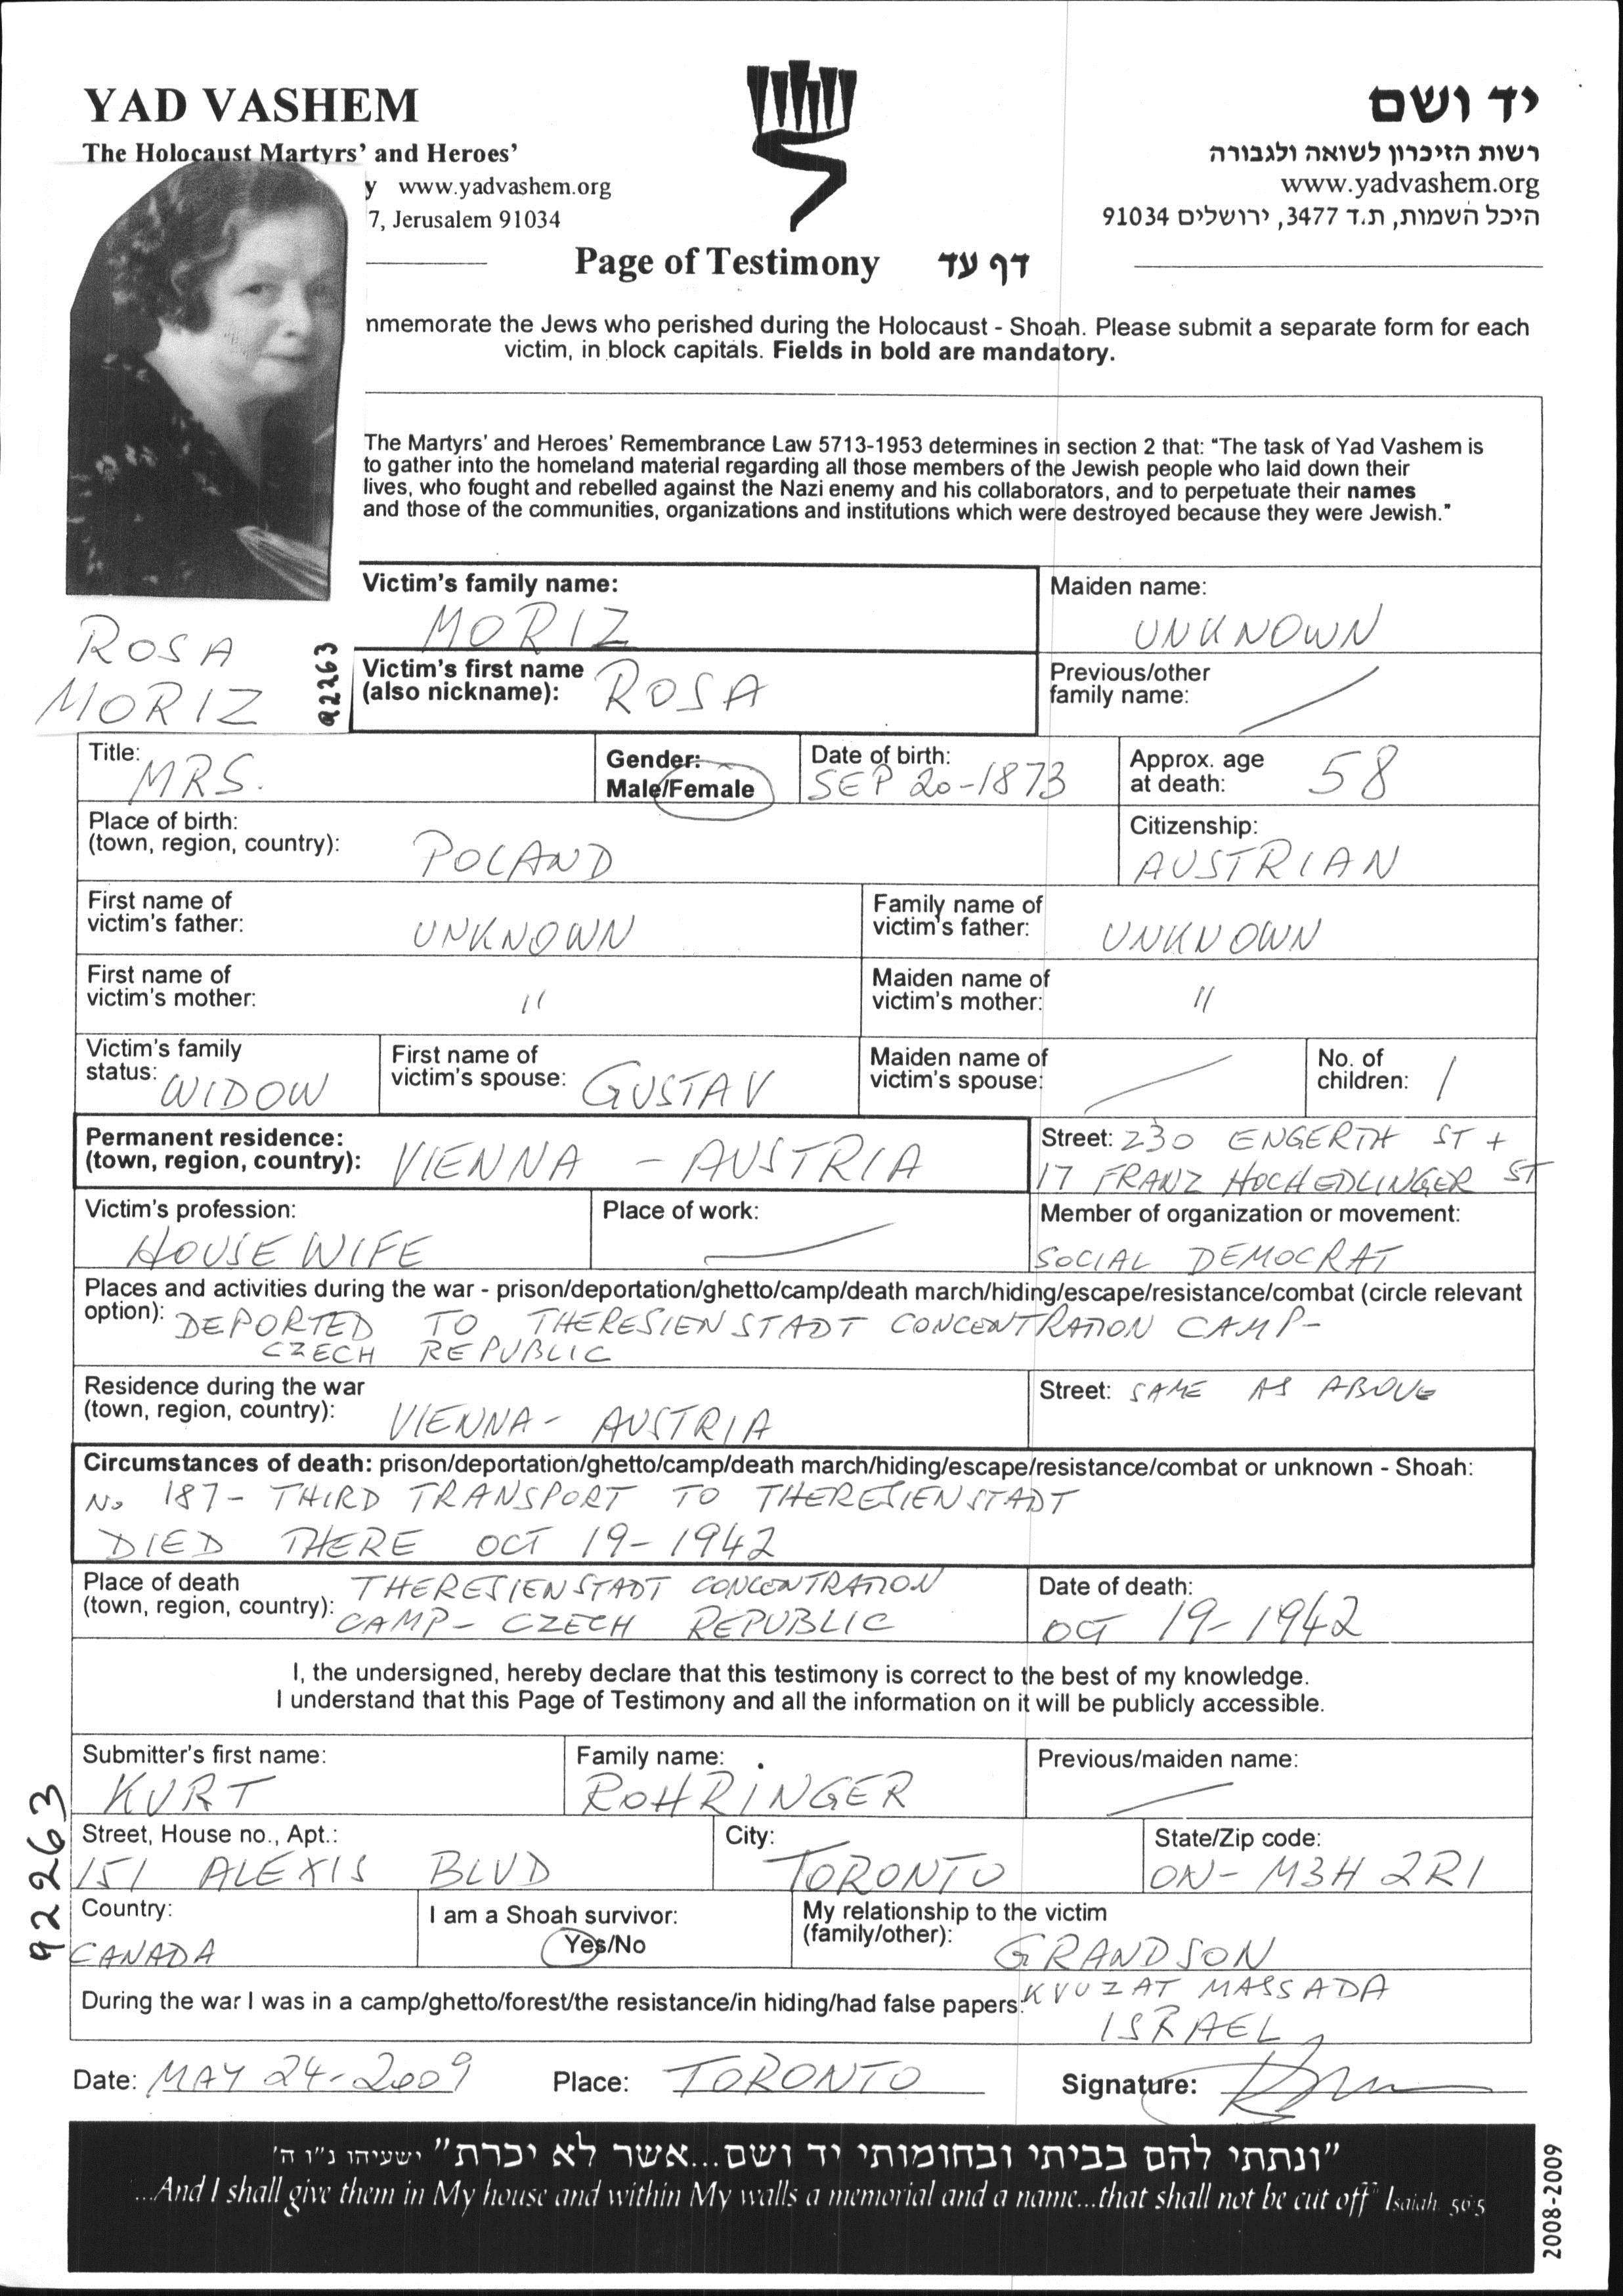 YAD VASHEM
The Holocaust Martyrs' and Heroes'
y www.yadvashem.org
7, Jerusalem 91034
יד ושם
רשות הזיכרון לשואה ולגבורה
www.yadvashem.org
היכל השמות, ת.ד 3477, ירושלים 91034
Page of Testimony דף עד
nmemorate the Jews who perished during the Holocaust - Shoah. Please submit a separate form for each
victim, in block capitals. Fields in bold are mandatory.
The Martyrs' and Heroes' Remembrance Law 5713-1953 determines in section 2 that: "The task of Yad Vashem is
to gather into the homeland material regarding all those members of the Jewish people who laid down their
lives, who fought and rebelled against the Nazi enemy and his collaborators, and to perpetuate their names
and those of the communities, organizations and institutions which were destroyed because they were Jewish."
ROSA
MORIZ
92263
Victim's family name:
MORIZ
Maiden name:
UNKNOWN
Victim's first name
(also nickname): ROSA
Previous/other
family name: /
Title:
MRS.
Gender:
Male/Female
Date of birth:
SEP 20-1873
Approx. age
at death: 58
Place of birth:
(town, region, country): POLAND
Citizenship:
AUSTRIAN
First name of
victim's father: UNKNOWN
Family name of
victim's father: UNKNOWN
First name of
victim's mother: "
Maiden name of
victim's mother: "
Victim's family
status: WIDOW
First name of
victim's spouse: GUSTAV
Maiden name of
victim's spouse: /
No. of
children: 1
Permanent residence:
(town, region, country): VIENNA - AUSTRIA
Street: 230 ENGERTH ST +
17 FRANZ HOCHEDLINGER ST
Victim's profession:
HOUSEWIFE
Place of work:
Member of organization or movement:
SOCIAL DEMOCRAT
Places and activities during the war - prison/deportation/ghetto/camp/death march/hiding/escape/resistance/combat (circle relevant
option): DEPORTED TO THERESIENSTADT CONCENTRATION CAMP-
CZECH REPUBLIC
Residence during the war
(town, region, country): VIENNA- AUSTRIA
Street: SAME AS ABOVE
Circumstances of death: prison/deportation/ghetto/camp/death march/hiding/escape/resistance/combat or unknown - Shoah:
No 187- THIRD TRANSPORT TO THERESIENSTADT
DIED THERE OCT 19-1942
Place of death
(town, region, country): THERESIENSTADT CONCENTRATION
CAMP- CZECH REPUBLIC
Date of death:
OCT 19-1942
I, the undersigned, hereby declare that this testimony is correct to the best of my knowledge.
I understand that this Page of Testimony and all the information on it will be publicly accessible.
Submitter's first name:
KURT
Family name:
ROHRINGER
Previous/maiden name:
92263
Street, House no., Apt.:
151 ALEXIS BLVD
City:
TORONTO
State/Zip code:
ON- M3H 2R1
Country:
CANADA
I am a Shoah survivor:
Yes/No
My relationship to the victim
(family/other): GRANDSON
During the war I was in a camp/ghetto/forest/the resistance/in hiding/had false papers: KVUZAT MASSADA
ISRAEL
Date: MAY 24-2009 Place: TORONTO Signature:
"ונתתי להם בביתי ובחומותי יד ושם...אשר לא יכרת" ישעיהו נ"ו ה'
...And I shall give them in My house and within My walls a memorial and a name...that shall not be cut off" Isaiah 56:5
2008-2009